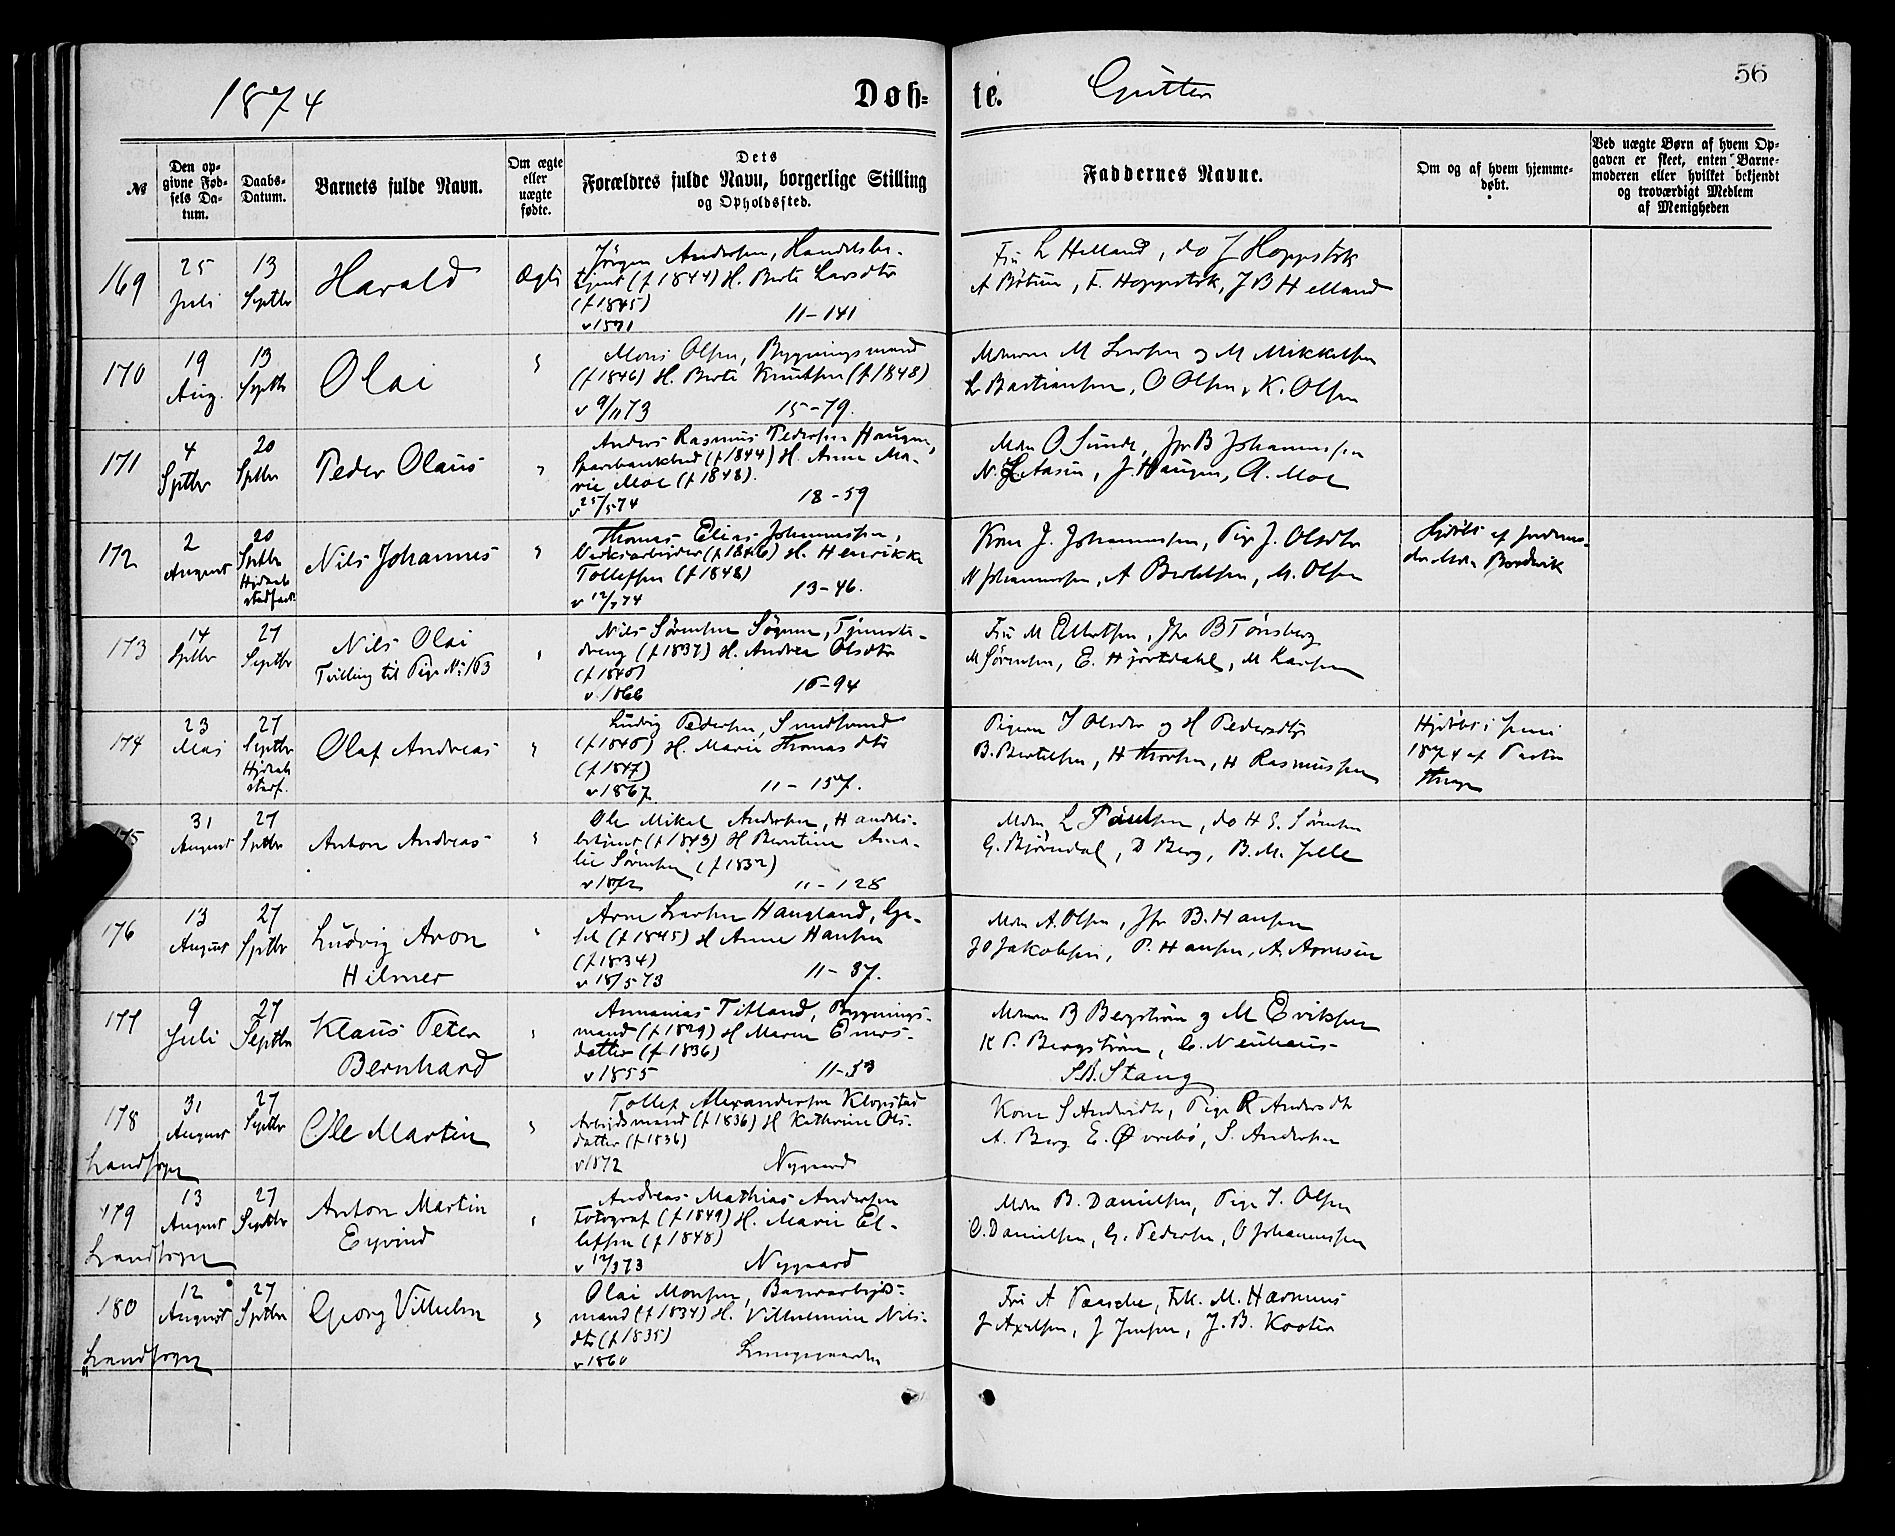 1874 Døb- te. Gutter 56
№
Den opgivne Fødsels Datum.
Daabs-Datum.
Barnets fulde Navn.
Om ægte eller uægte fødte.
Dets Forældres fulde Navn, borgerlige Stilling og Opholdssted.
Faddernes Navne.
Om og af hvem hjemmedøbt.
Ved uægte Børn af hvem Opgaven er skeet, enten Barnemoderen eller hvilket bekjendt og troværdigt Medlem af Menigheden
169 25 Juli 13 Septbr Harald Ægte
Jörgen Andersen, Handelsbe-
tjent (f 1844) H. Berte Larsdtr
(f 1845)
v 1871 11-141
Fru L Helland, do J Hoppstok
A Bötun, F. Hoppstok, J B Helland
170 19 Aug. 13 Septbr Olai "
Mons Olsen, Bygningsmand
(f 1846) H. Berte Knutsen (f 1848)
v 9/11 73 15-79.
Mdmme M Larsen og M Mikkelsen
L Bastiansen, O Olsen, K. Olsen
171 4 Sptbr 20 Sptbr Peder Olaus "
Anders Rasmus Pedersen Haugen,
Sparbankbud (f 1844) H. Anne Ma-
rie Moe (f 1848).
v 25/5 74 18-59
Mdm O Sunde, Jfr B Johannessen
N. Aasen, J. Haugen, A. Moe
172 2 August 20 Septbr Hjdaab stadfæst. Nils Johannes "
Thomas Elias Johannessen,
Værksarbejder (f 1846) H. Henrikke
Tollefsen (f 1848)
v 12/7 74 13-46.
Kone J. Johannessen, Pige J. Olsdtr
N Johannessen, A Bertelsen, M. Olsen
Hjdöbt af Jordemo-
der Mdm Brodwik
173 14 Sptbr 27 Septbr Nils Olai "
Tvilling til Pige No 163
Nils Sörensen Sögnen, Tjeneste-
dreng (f 1837) H. Andrea Olsdtr
(f 1840)
v 1866 16-94
Fru M Ellertsen, Jfr B Tönsberg
M Sörensen, E. Hjortdahl, M Larsen
174 23 Mai 27 Septbr Hjdaab stadf. Olaf Andreas "
Ludvig Pedersen, Smedsvend
(f 1846) H. Marie Thomasdtr
(f 1847)
v 1867 11-157.
Pigerne J Olsdtr og H Pedersdtr
B. Bertelsen, H Thorsen, H Rasmussen
Hjdöbt i Juni
1874 af Pastor
175 31 August 27 Sptbr Anton Andreas "
Ole Mikal Andersen, Handels-
betjent (f 1843) H Berntine Ama-
lie Sörensen (f 1832)
v 1872 11-128
Mdm L Paulsen, do H E. Sörensen
G. Björndal, D Berg, B. M. Jelle
176 13 August 27 Sptbr Ludvig Aron
Hilmer "
Arne Larsen Haugland, Ge-
sel (f 1845) H Anne Hansen
(f 1834)
v 18/5 73 11-37.
Mdm A. Olsen, Jfr B. Hansen
J O Jakobsen, P. Hansen, A. Arnesen
177 9 Juli 27 Septbr Klaus Peter
Bernhard "
Annanias Titland, Bygnings-
mand (f 1829) H Maren Eners-
datter (f 1836)
v 1855 11-53
Mdmme B Bergström og M Eriksen
K P. Bergström, C. Neuhaus
S. B. Stang
178 31 August 27 Sptbr Ole Martin "
Landsogn
Tollef Alexandersen Klopstad
Arbejdsmand (f 1836) H Kathrine Ols-
datter (f 1836)
v 1872 Nygaard
Kone S Andersdtr, Pige R Andersdtr
A. Berg E. Øvrebö, S. Andersen
179 13 August 27 Septbr Anton Martin
Eyvind "
Landsogn
Andreas Mathias Andersen
Fotograf (f 1849) H. Marie El-
lefsen (f 1848)
v 12/3 73 Nygaard
Mdm B. Danielsen, Pige J. Olsen
O. Danielsen, G. Pedersen, O Johannessen
180 12 August 27 Sptbr Georg Vilhelm "
Landsogn
Olai Monsen, Banearbejds-
mand (f 1834) H. Vilhelmine Nils-
dtr (f 1835)
v 1860 Lungegaarden
Fru A Paasche, Frk. M. Harmens
J Axelsen, J Jensen, J. B. Kooter